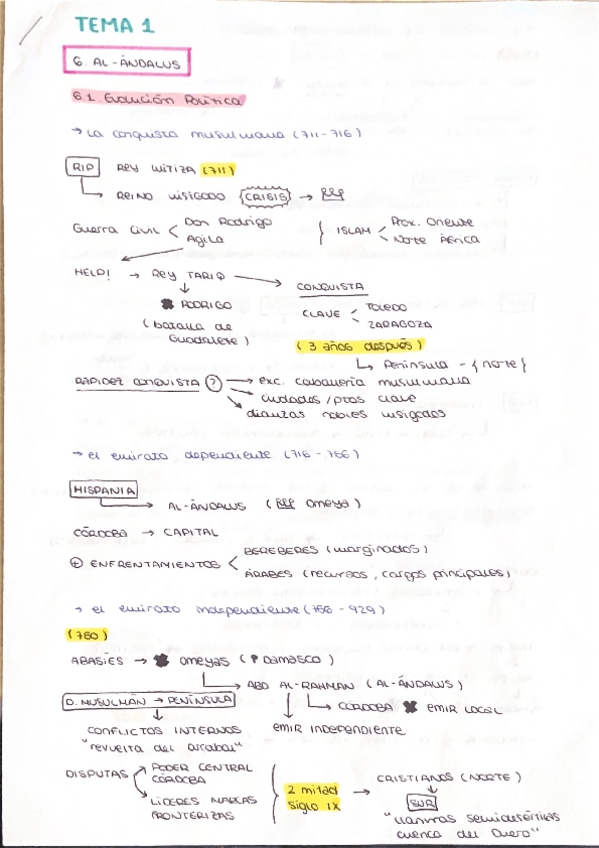 TEMA 1
6. AL-ÁNDALUS
6.1. Evolución Política
→ La conquista musulmana (711-716)
RIP REY WITIZA (711)
REINO VISIGODO CRISIS →
Guerra Civil < Don Rodrigo
Agila
ISLAM < Prox. Oriente
Norte África
HELP! → Rey TARIQ → CONQUISTA
RODRIGO
(batalla de Guadalete)
CLAVE < TOLEDO
ZARAGOZA
(3 años después)
Península - {norte}
RAPIDEZ CONQUISTA ? → exc. caballería musulmana
ciudades/ptos clave
alianzas nobles visigodos
→ el emirato dependiente (716-756)
HISPANIA
AL-ÁNDALUS ( omeya)
CÓRDOBA → CAPITAL
+ ENFRENTAMIENTOS < BEREBERES (marginados)
ÁRABES (recursos, cargos principales)
→ el emirato independiente (756-929)
(750)
ABASÍES → omeyas ( Damasco)
ABD AL-RAHMAN (AL-ÁNDALUS)
D. MUSULMÁN → PENÍNSULA
CÓRDOBA EMIR LOCAL
CONFLICTOS INTERNOS
emir INDEPENDIENTE
"revuelta del arrabal"
DISPUTAS PODER CENTRAL
CÓRDOBA
LÍDERES MARCAS
FRONTERIZAS
2 mitad
siglo IX
→ CRISTIANOS (NORTE)
SUR
"llanuras semidesérticas
cuenca del Duero"